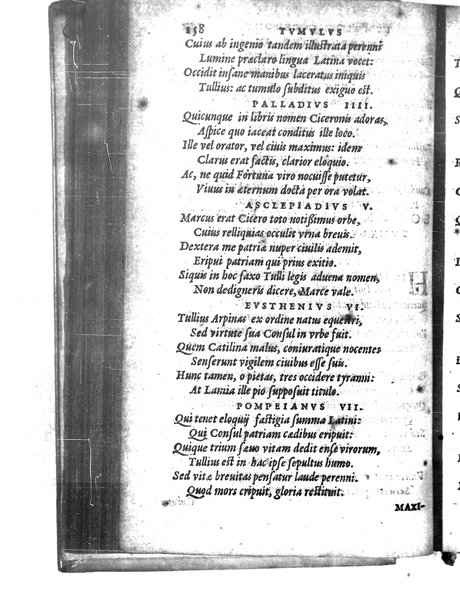 158 TVMVLVS
Cuius ab ingenio tandem illustrata perenni
Lumine præclaro lingua Latina vocet:
Occidit insane manibus laceratus iniquis
Tullius: ac tumulo subditus exiguo est.
PALLADIVS IIII.
Quicunque in libris nomen Ciceronis adoras,
Aspice quo iaceat conditus ille loco.
Ille vel orator, vel ciuis maximus: idem
Clarus erat factis, clarior eloquio.
Ac, ne quid Fortuna viro nocuisse putetur,
Viuus in æternum docta per ora volat.
ASCLEPIADIVS V.
Marcus erat Cicero toto notißimus orbe,
Cuius relliquias occulit vrna breuis.
Dextera me patriæ nuper ciuilis ademit,
Eripui patriam qui prius exitio.
Siquis in hoc saxo Tulli legis aduena nomen,
Non dedigneris dicere, Marce vale.
EVSTHENIVS VI.
Tullius Arpinas ex ordine natus equestri,
Sed virtute sua Consul in vrbe fuit.
Quem Catilina malus, coniuratique nocentes
Senserunt vigilem ciuibus esse suis.
Hunc tamen, o pietas, tres occidere tyranni:
At Lamia ille pio supposuit titulo.
POMPEIANVS VII.
Qui tenet eloquij fastigia summa Latini:
Qui Consul patriam cædibus eripuit:
Quique trium sæuo vitam dedit ense virorum,
Tullius est in hac ipse sepultus humo.
Sed vitæ breuitas pensatur laude perenni.
Quod mors eripuit, gloria restituit.
MAXI-